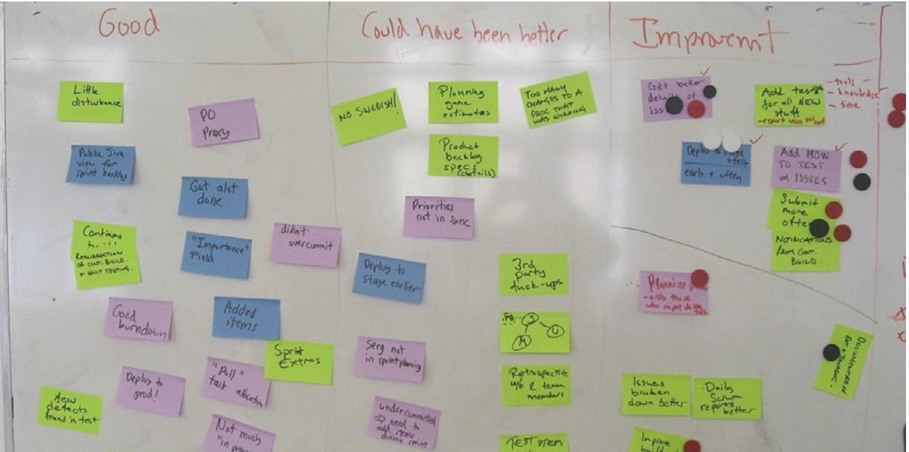 Good
Little
disturbance
PO
Proxy
Public Jira
view for
sprint backlog
Got alot
done
Continous
RESURRECTION
OF CONT. BUILD
+ UNIT TESTING.
"Importance"
Field
didn't
overcommit
Good
burndown
Added
items
Sprint
Extras
Deploy to
prod!
"Pull"
task
allocation
few
defects
found in test
Not much
"in
Could have been better
NO SWEDISH!
Planning
game
estimates
TOO MANY
CHANGES TO A
PROC THAT
WAS WORKING
Product
backlog
specs
(details)
Priorities
not in sync
Deploy to
stage earlier
3rd
party
fuck-ups
S
M
U
Serg not
in sprintplanning
Retrospective
w/o 2 team
members
undercommitted
=> need to
add items
during sprint
TEST ITEM
Improvemt
Get better
details of
Add tests
for all NEW
stuff
- tools
- knowledge
- time
Deploy
+ test
early + often
Add HOW
TO TEST
on ISSUES
Submit
more
often
NOTIFICATIONS
FROM CONT.
BUILD
Planning
- only those
who might do the
Issues
broken
down better
Daily
Scrum
reports
better
Improve